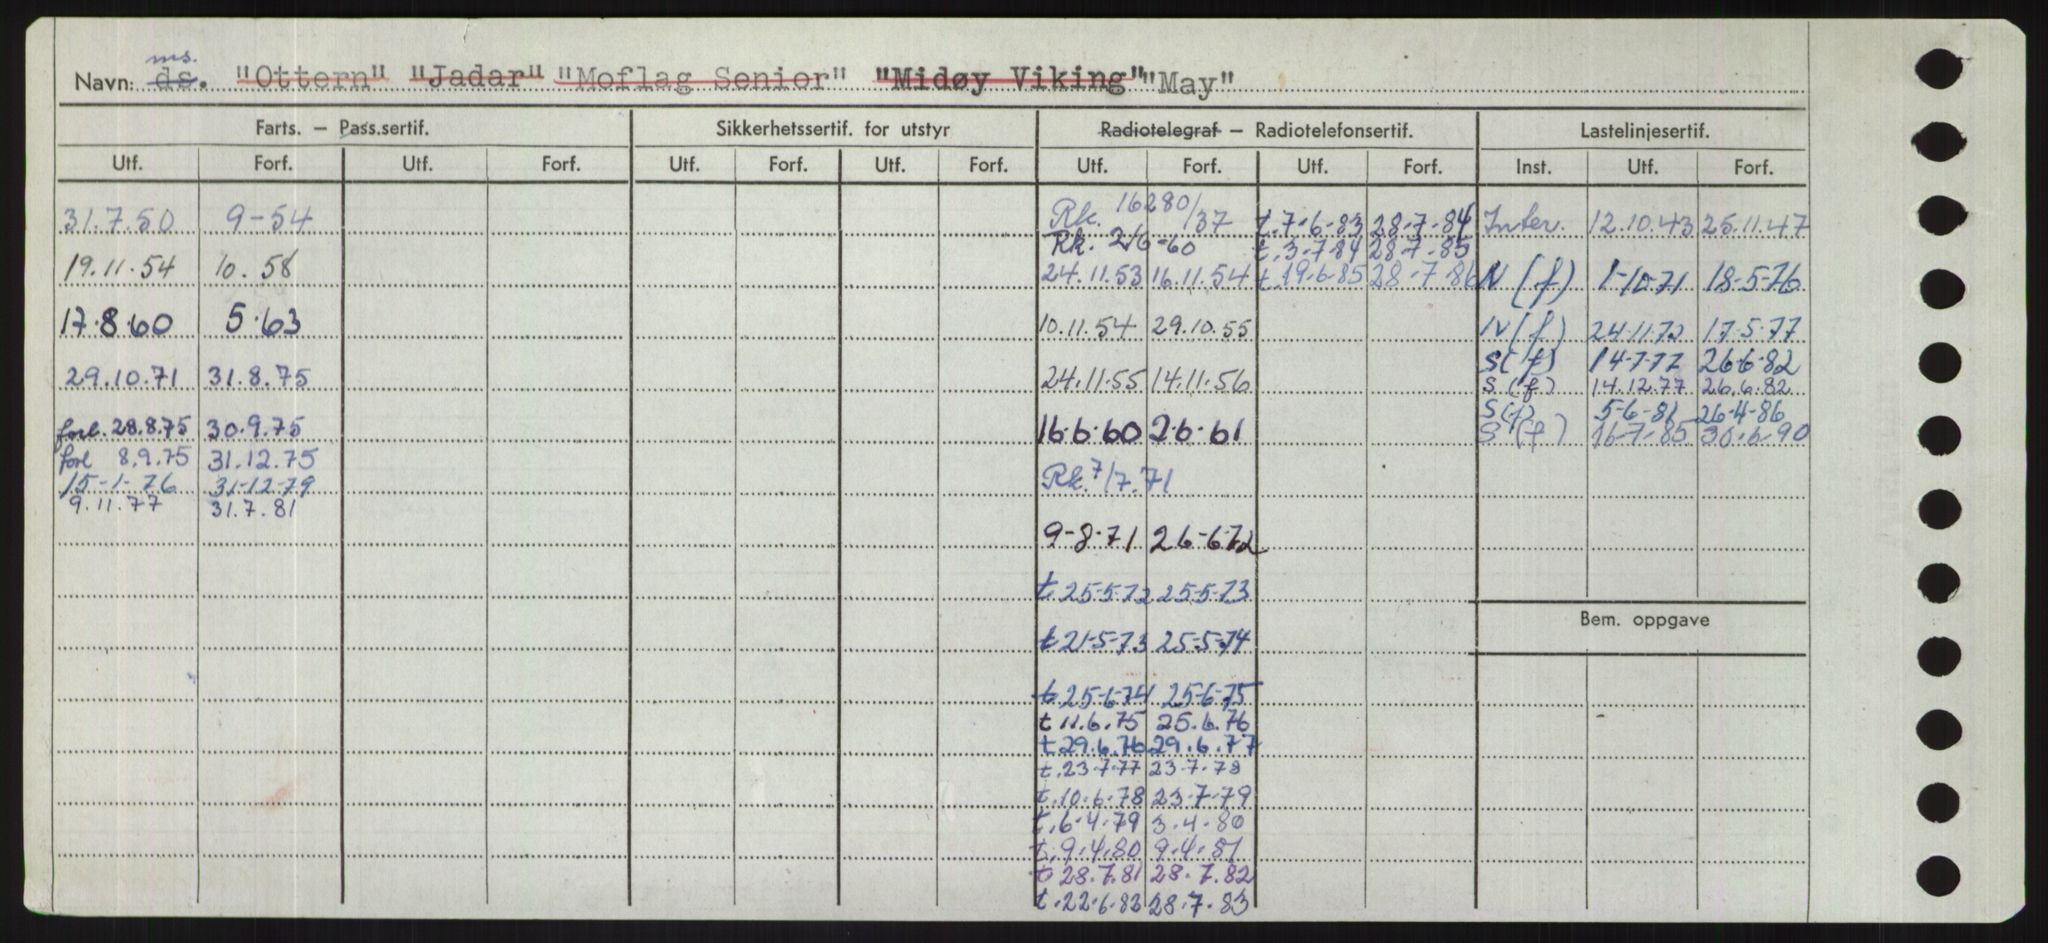 ms.
Navn: ds. "Ottern" "Jadar" "Moflag Senior" "Midøy Viking" "May"
Farts. – Pass.sertif. Sikkerhetssertif. for utstyr Radiotelegraf – Radiotelefonsertif. Lastelinjesertif.
Utf. Forf. Utf. Forf. Utf. Forf. Utf. Forf. Utf. Forf. Utf. Forf. Inst. Utf. Forf.
31.7.50 9-54 Rk. 16280/37 t.7-6-83 28-7-84 Inter. 12.10.43 25.11.47
Rk. 2/6-60 t.3.7.84 28.7.85
19.11.54 10.58 24.11.53 16.11.54 t.19.6.85 28.7.86 N (f) 1-10-71 18-5-76
17.8.60 5.63 10.11.54 29.10.55 N (f) 24-11-72 17-5-77
S (f) 14-7-77 26-6-82
29.10.71 31.8.75 24.11.55 14.11.56 S (f) 14.12.77 26.6.82
S (f) 5-6-81 26-4-86
forl. 28.8.75 30.9.75 16.6.60 2.6.61 S (f) 16-7-85 30-6-90
forl 8.9.75 31.12.75
15-1-76 31-12-79 Rk. 7/7.71
9.11.77 31.7.81
9-8-71 26-6-72
t.25-5-72 25-5-73
t 21-5-73 25-5-74
Bem. oppgave
t.25-6-74 25-6-75
t 11.6.75 25.6.76
t 29.6.76 29.6.77
t.23.7.77 23.7.78
t.10.6.78 23.7.79
t.6.4.79 3.4.80
t.9.4.80 9.4.81
t 28.7.81 28.7.82
t.22.6.82 28.7.83